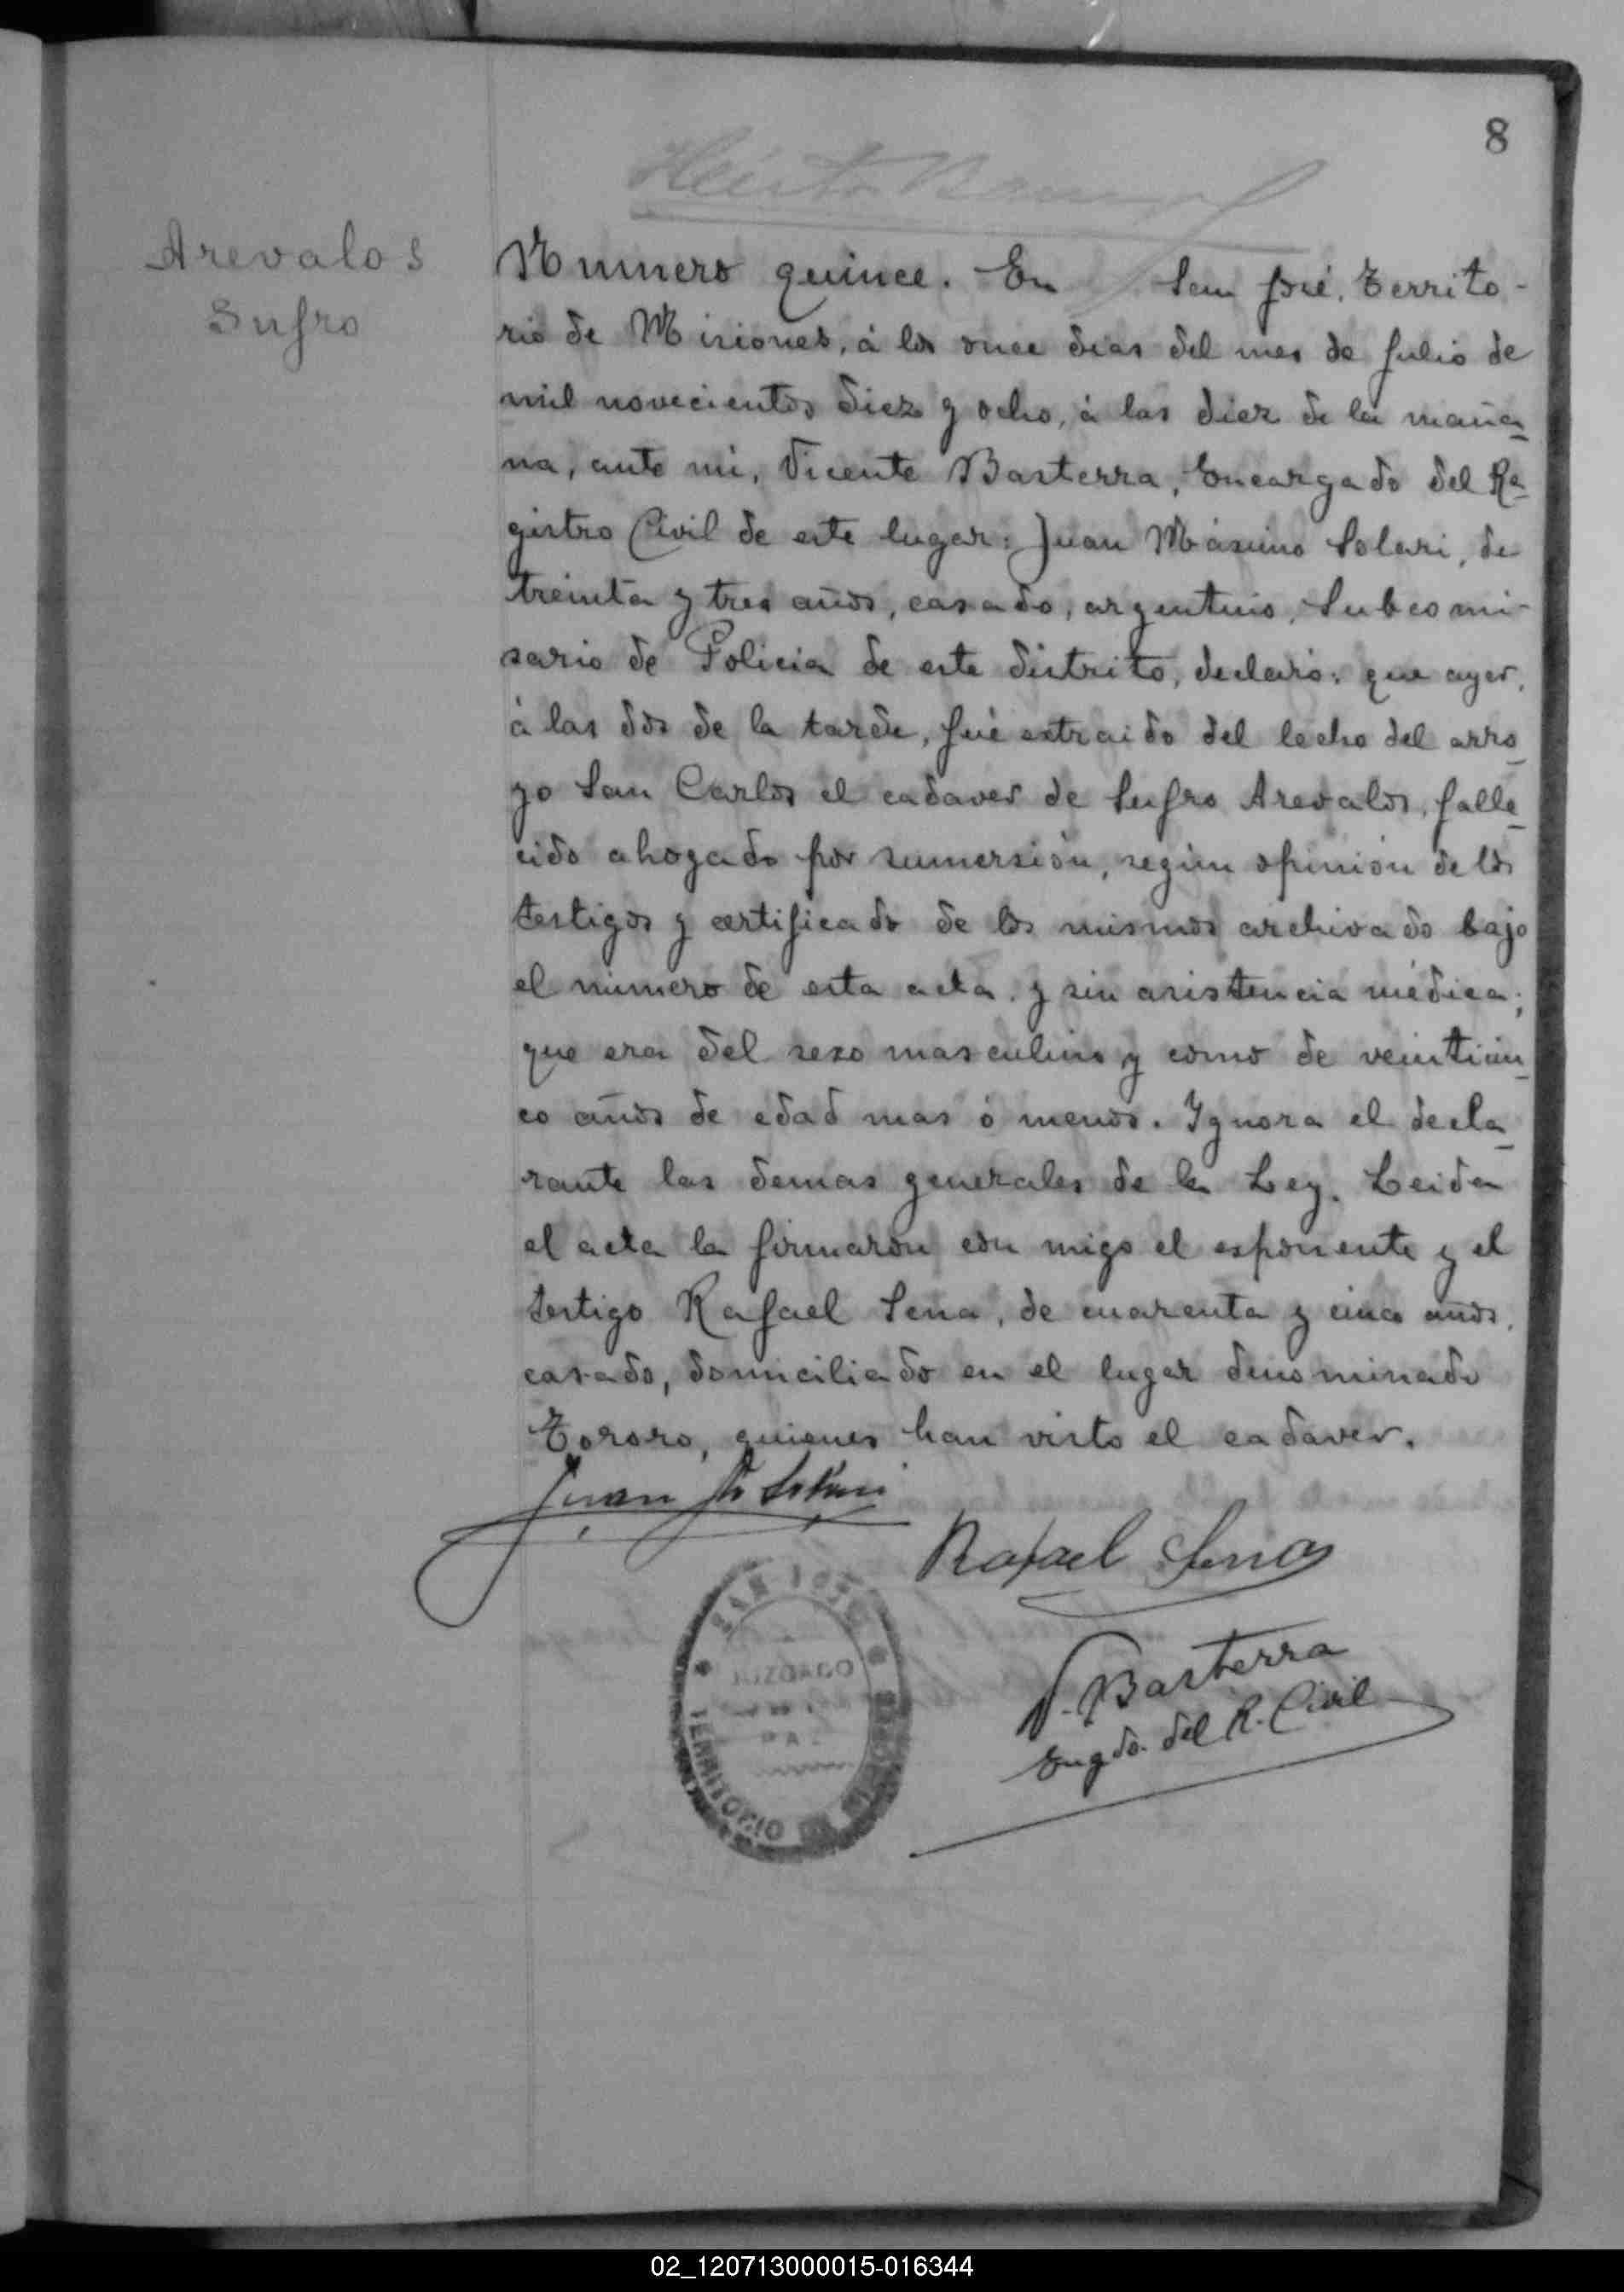 8
Arevalos
Sufro
Numero quince. En San José, Territo-
rio de Misiones, á los once dias del mes de Julio de
mil novecientos diez y ocho, á las diez de la maña-
na, ante mi, Vicente Basterra, Encargado del Re-
gistro Civil de este lugar: Juan Máximo Solari, de
treinta y tres años, casado, argentino, Subcomi-
sario de Policia de este distrito, declaró: que ayer,
á las dos de la tarde, fué extraido del lecho del arro-
yo San Carlos el cadaver de Sufro Arevalos, falle-
cido ahogado por sumersión, según opinión de los
testigos y certificado de los mismos archivado bajo
el número de esta acta y sin asistencia médica;
que era del sexo masculino y como de veinticin-
co años de edad mas ó menos. Ignora el decla-
rante las demas generales de la Ley. Leida
el acta la firmaron con migo el esponente y el
testigo Rafael Sena, de cuarenta y cinco años,
casado, domiciliado en el lugar denominado
Tororo, quienes han visto el cadaver.
Juan M Solari
Rafael Sena
SAN JOSE
JUZGADO
DE
PAZ
TERRITORIO DE MISIONES
V. Basterra
Engdo. del R. Civil
02_120713000015-016344